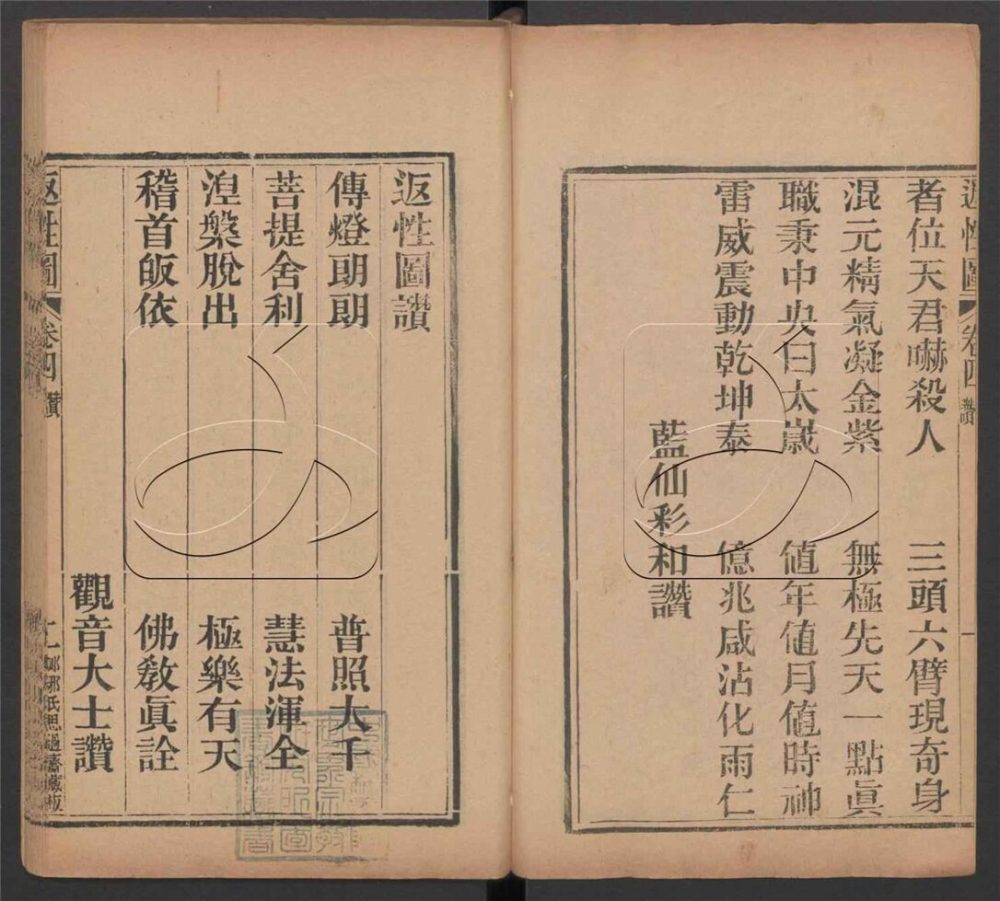 返性圖 卷四 讚 一
者位天君嚇殺人 三頭六臂現奇身
混元精氣凝金紫 無極先天一點眞
職秉中央曰太歲 値年値月値時神
雷威震動乾坤泰 億兆咸沾化雨仁
藍仙彩和讚
返性圖讚
傳燈朗朗 普照大千
菩提舍利 慧法渾全
湼槃脫出 極樂有天
稽首皈依 佛敎眞詮
觀音大士讚
返性圖 卷四 讚